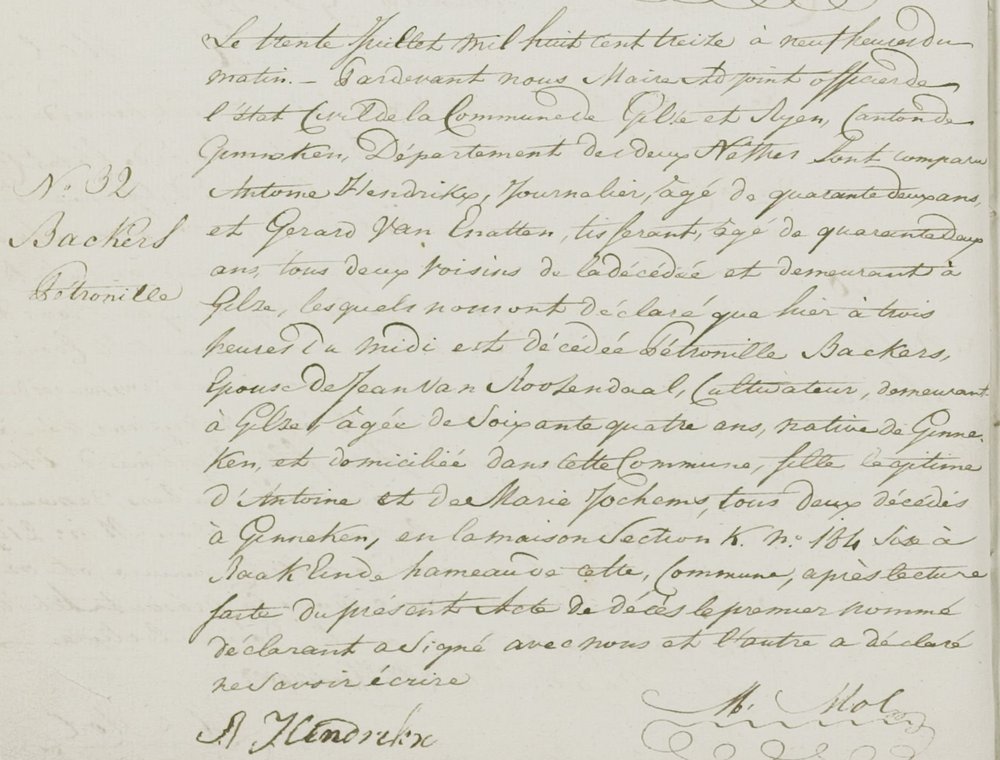 Le trente Juillet mil huit cent treize à neuf heures du
matin. – Pardevant nous Maire Adjoint officier de
l'état Civil de la Commune de Gilze et Ryen, Canton de
Ginneken, Département des deux Nèthes Sont comparu
Antoine Hendrikx, Journalier, âgé de quarante deux ans,
et Gerard Van Enatten, tisserant, âgé de quarante deux
ans, tous deux voisins de la décédée et demeurant à
Gilze, lesquels nous ont déclaré que hier à trois
heures du midi est décédée Pétronille Backers,
Epouse de Jean Van Roosendaal, Cultivateur, demeurant
à Gilze âgée de Soixante quatre ans, native de Ginne-
ken, et domiciliée dans cette Commune, fille légitime
d'Antoine et de Marie Jochems, tous deux décédés
à Ginneken, en la maison Section K. N.o 184 Sise à
Raakeinde hameau de cette, Commune, après lecture
faite du présent Acte de décès le premier nommé
déclarant a Signé avec nous et l'autre a déclaré
ne Savoir écrire
N.o 32
Backers
Pétronille
A Hendrikx
M. Mol